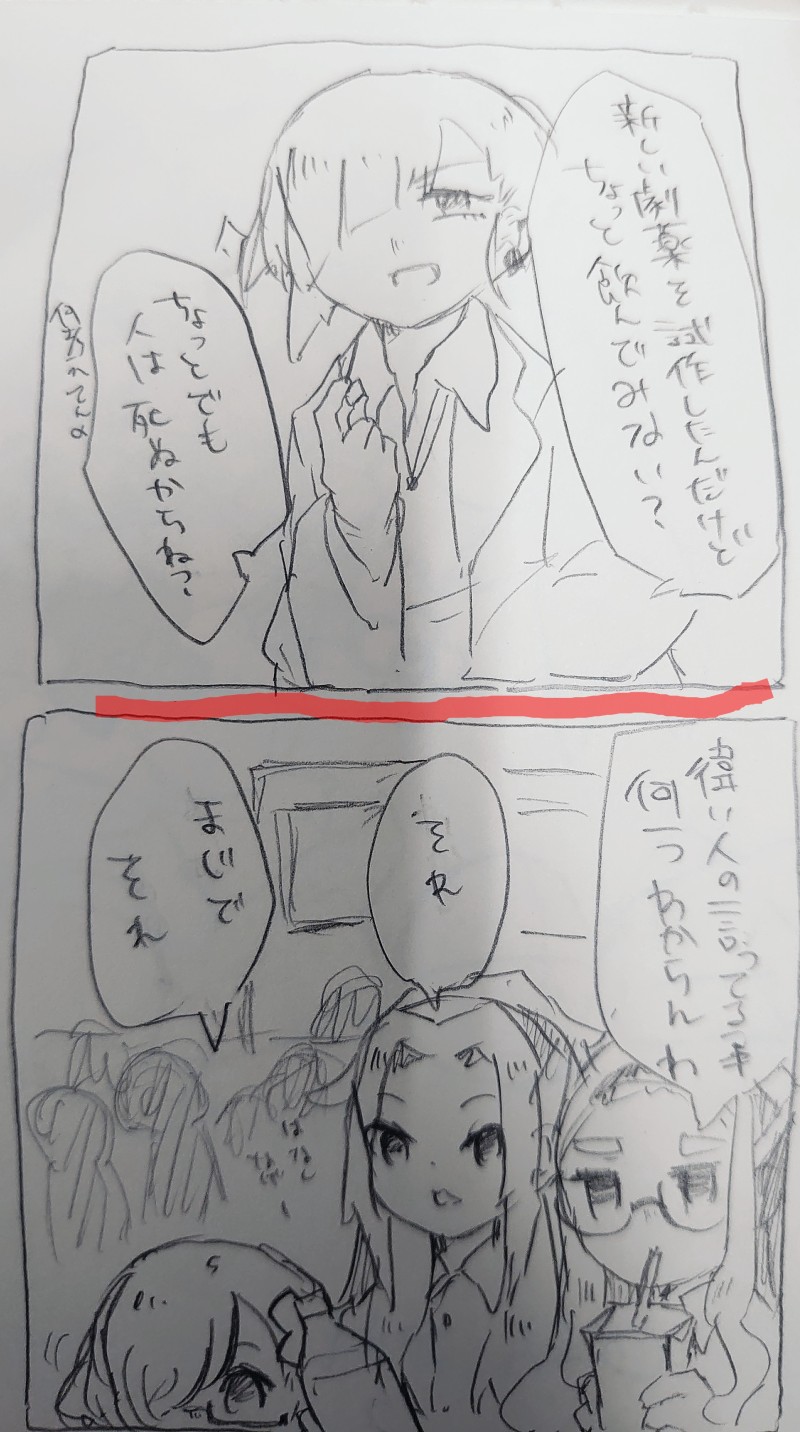 新しい劇薬を試作したんだけど
ちょっと飲んでみない?
ちょっとでも
人は死ぬからね?
偉い人の言ってる事
何一つわからんわ
それ
まじで
それ
はなし